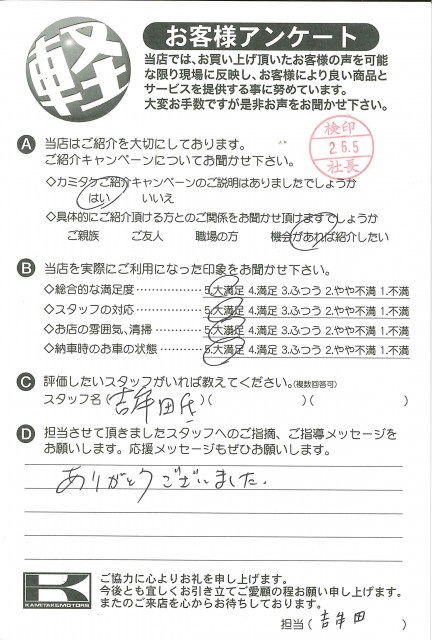 軽
お客様アンケート
当店では、お買い上げ頂いたお客様の声を可能
な限り現場に反映し、お客様により良い商品と
サービスを提供する事に努めています。
大変お手数ですが是非お声をお聞かせ下さい。
検印
26.5
社長
A 当店はご紹介を大切にしております。
ご紹介キャンペーンについてお聞かせ下さい。
◇カミタケご紹介キャンペーンのご説明はありましたでしょうか
はい いいえ
◇具体的にご紹介頂ける方とのご関係をお聞かせ頂けますでしょうか
ご親族 ご友人 職場の方 機会があれば紹介したい
B 当店を実際にご利用になった印象をお聞かせ下さい。
◇総合的な満足度 ……………… 5.大満足 4.満足 3.ふつう 2.やや不満 1.不満
◇スタッフの対応 ……………… 5.大満足 4.満足 3.ふつう 2.やや不満 1.不満
◇お店の雰囲気、清掃 ………… 5.大満足 4.満足 3.ふつう 2.やや不満 1.不満
◇納車時のお車の状態 ………… 5.大満足 4.満足 3.ふつう 2.やや不満 1.不満
C 評価したいスタッフがいれば教えてください。(複数回答可)
スタッフ名(吉牟田氏)( )( )
D 担当させて頂きましたスタッフへのご指摘、ご指導メッセージを
お願いします。応援メッセージもぜひお願いします。
ありがとうございました.
K
KAMITAKEMOTORS
ご協力に心よりお礼を申し上げます。
今後とも宜しくお引き立てご愛顧の程お願い申し上げます。
またのご来店を心からお待ちしております。
担当(吉牟田)